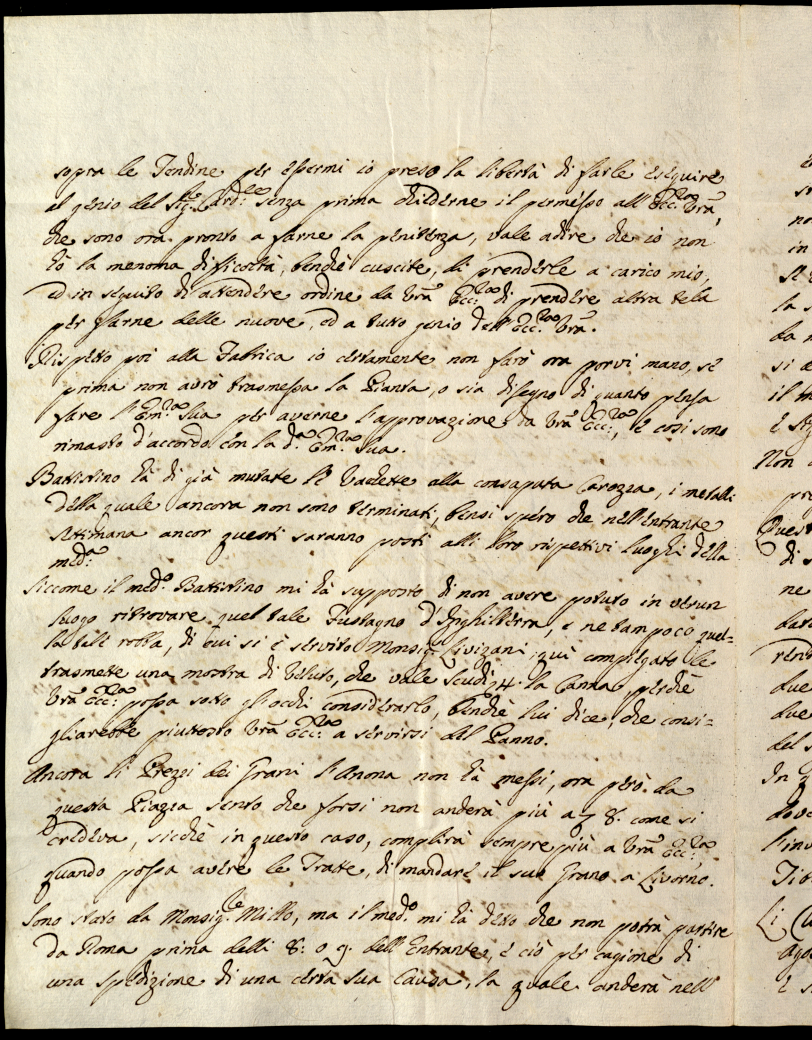 sopra le Tendine per essermi io preso la libertà di farle eseguire
al genio del Sig.re Card.le senza prima chiederne il permesso all'Ecc.za Vrã,
che sono ora pronto a farne la penitenza, vale adire che io non
hò la menoma difficoltà, benchè cuscite, di prenderle a carico mio,
ed in seguito di attendere ordine da Vrã Ecc.za di prendere altra tela
per farne delle nuove, ed a tutto genio dell'Ecc.za Vrã.
Rispetto poi alla Fabrica io certamente non farò ora porvi mano, se
prima non avrò trasmessa la Pianta, o sia disegno di quanto pensa
fare l'Em.za Sua per averne l'approvazione da Vrã Ecc.za, e così sono
rimasto d'accordo con la d.a Em.za Sua.
Battistino hà di già mutate le Vacchette alla consaputa Carozza, i metalli
della quale ancora non sono terminati, bensì spero che nell'entrante
settimana ancor questi saranno posti alli loro rispettivi luoghi della
med.a
Siccome il med.o Battistino mi hà supposto di non avere potuto in verun
luogo ritrovare quel tale Fustagno d'Inghilterra, e ne tampoco quel=
la tale robba, di cui si è servito Monsig.r Livizani, quì compiegato le
trasmette una mostra di Veluto, che vale Scudi 4. la Canna, perchè
Vrã Ecc.za possa sotto gl'occhi considerarlo, benchè lui dice, che consi=
gliarebbe piuttosto Vrã Ecc.za a servirsi del Panno.
Ancora li Prezzi dei Grani l'Anona non hà messi, ora però da
questa Piazza sento che forsi non anderà più a 7 8. come si
credeva, sicchè in questo caso, complirà sempre più a Vrã Ecc.za,
quando possa avere le Tratte, di mandare il suo Grano a Livorno.
Sono stato da Monsig.re Millo, ma il med.o mi hà detto che non potrà partire
da Roma prima delli 8. o 9. dell'Entrante, e ciò per cagione di
una spedizione di una certa sua Causa, la quale anderà nell'